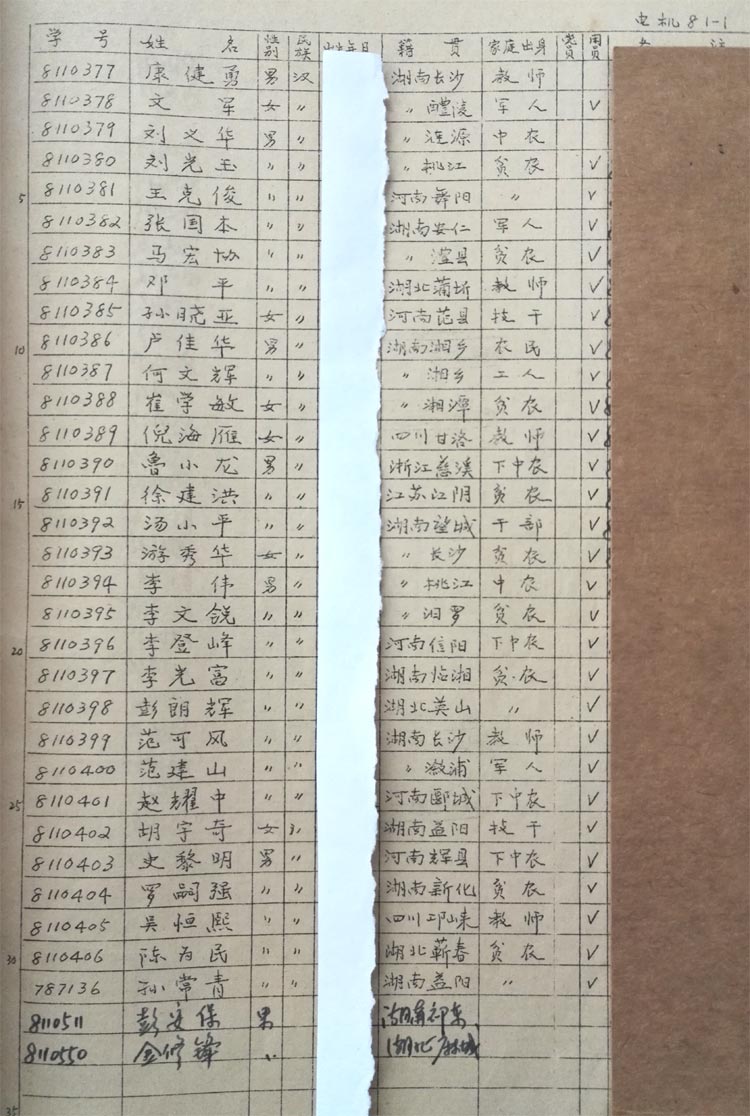 电机81-1
学号 姓名 性别 民族 籍贯 家庭出身 党员 团员
8110377 康健勇 男 汉 湖南长沙 教师
8110378 文军 女 〃 〃 醴陵 军人 ✓
8110379 刘义华 男 〃 〃 涟源 中农
8110380 刘光玉 〃 〃 〃 桃江 贫农 ✓
5 8110381 王克俊 〃 〃 河南舞阳 〃 ✓
8110382 张国本 〃 〃 湖南安仁 军人 ✓
8110383 马宏协 〃 〃 〃 澧县 贫农 ✓
8110384 邓平 〃 〃 湖北蒲圻 教师 ✓
8110385 孙晓亚 女 〃 河南范县 技干 ✓
10 8110386 卢佳华 男 〃 湖南湘乡 农民 ✓
8110387 何文辉 〃 〃 〃 湘乡 工人 ✓
8110388 崔学敏 女 〃 〃 湘潭 贫农 ✓
8110389 倪海雁 女 〃 四川甘洛 教师 ✓
8110390 鲁小龙 男 〃 浙江慈溪 下中农 ✓
15 8110391 徐建洪 〃 〃 江苏江阴 贫农 ✓
8110392 汤小平 〃 〃 湖南望城 干部 ✓
8110393 游秀华 女 〃 〃 长沙 贫农 ✓
8110394 李伟 男 〃 〃 桃江 中农 ✓
8110395 李文锐 〃 〃 〃 汨罗 贫农 ✓
20 8110396 李登峰 〃 〃 河南信阳 下中农 ✓
8110397 李光富 〃 〃 湖南临湘 贫农 ✓
8110398 彭朗辉 〃 〃 湖北英山 〃 ✓
8110399 范可风 〃 〃 湖南长沙 教师 ✓
8110400 范建山 〃 〃 〃 溆浦 军人 ✓
25 8110401 赵耀中 〃 〃 河南郾城 下中农 ✓
8110402 胡宇奇 女 〃 湖南益阳 技干 ✓
8110403 史黎明 男 〃 河南辉县 下中农 ✓
8110404 罗嗣强 〃 〃 湖南新化 贫农 ✓
8110405 吴恒熙 〃 〃 四川邛崃 教师 ✓
30 8110406 陈为民 〃 〃 湖北蕲春 贫农 ✓
787136 孙常青 〃 〃 湖南益阳 〃 ✓
8110511 彭安保 男 湖南祁东
8110550 金修锋 〃 湖北麻城
35